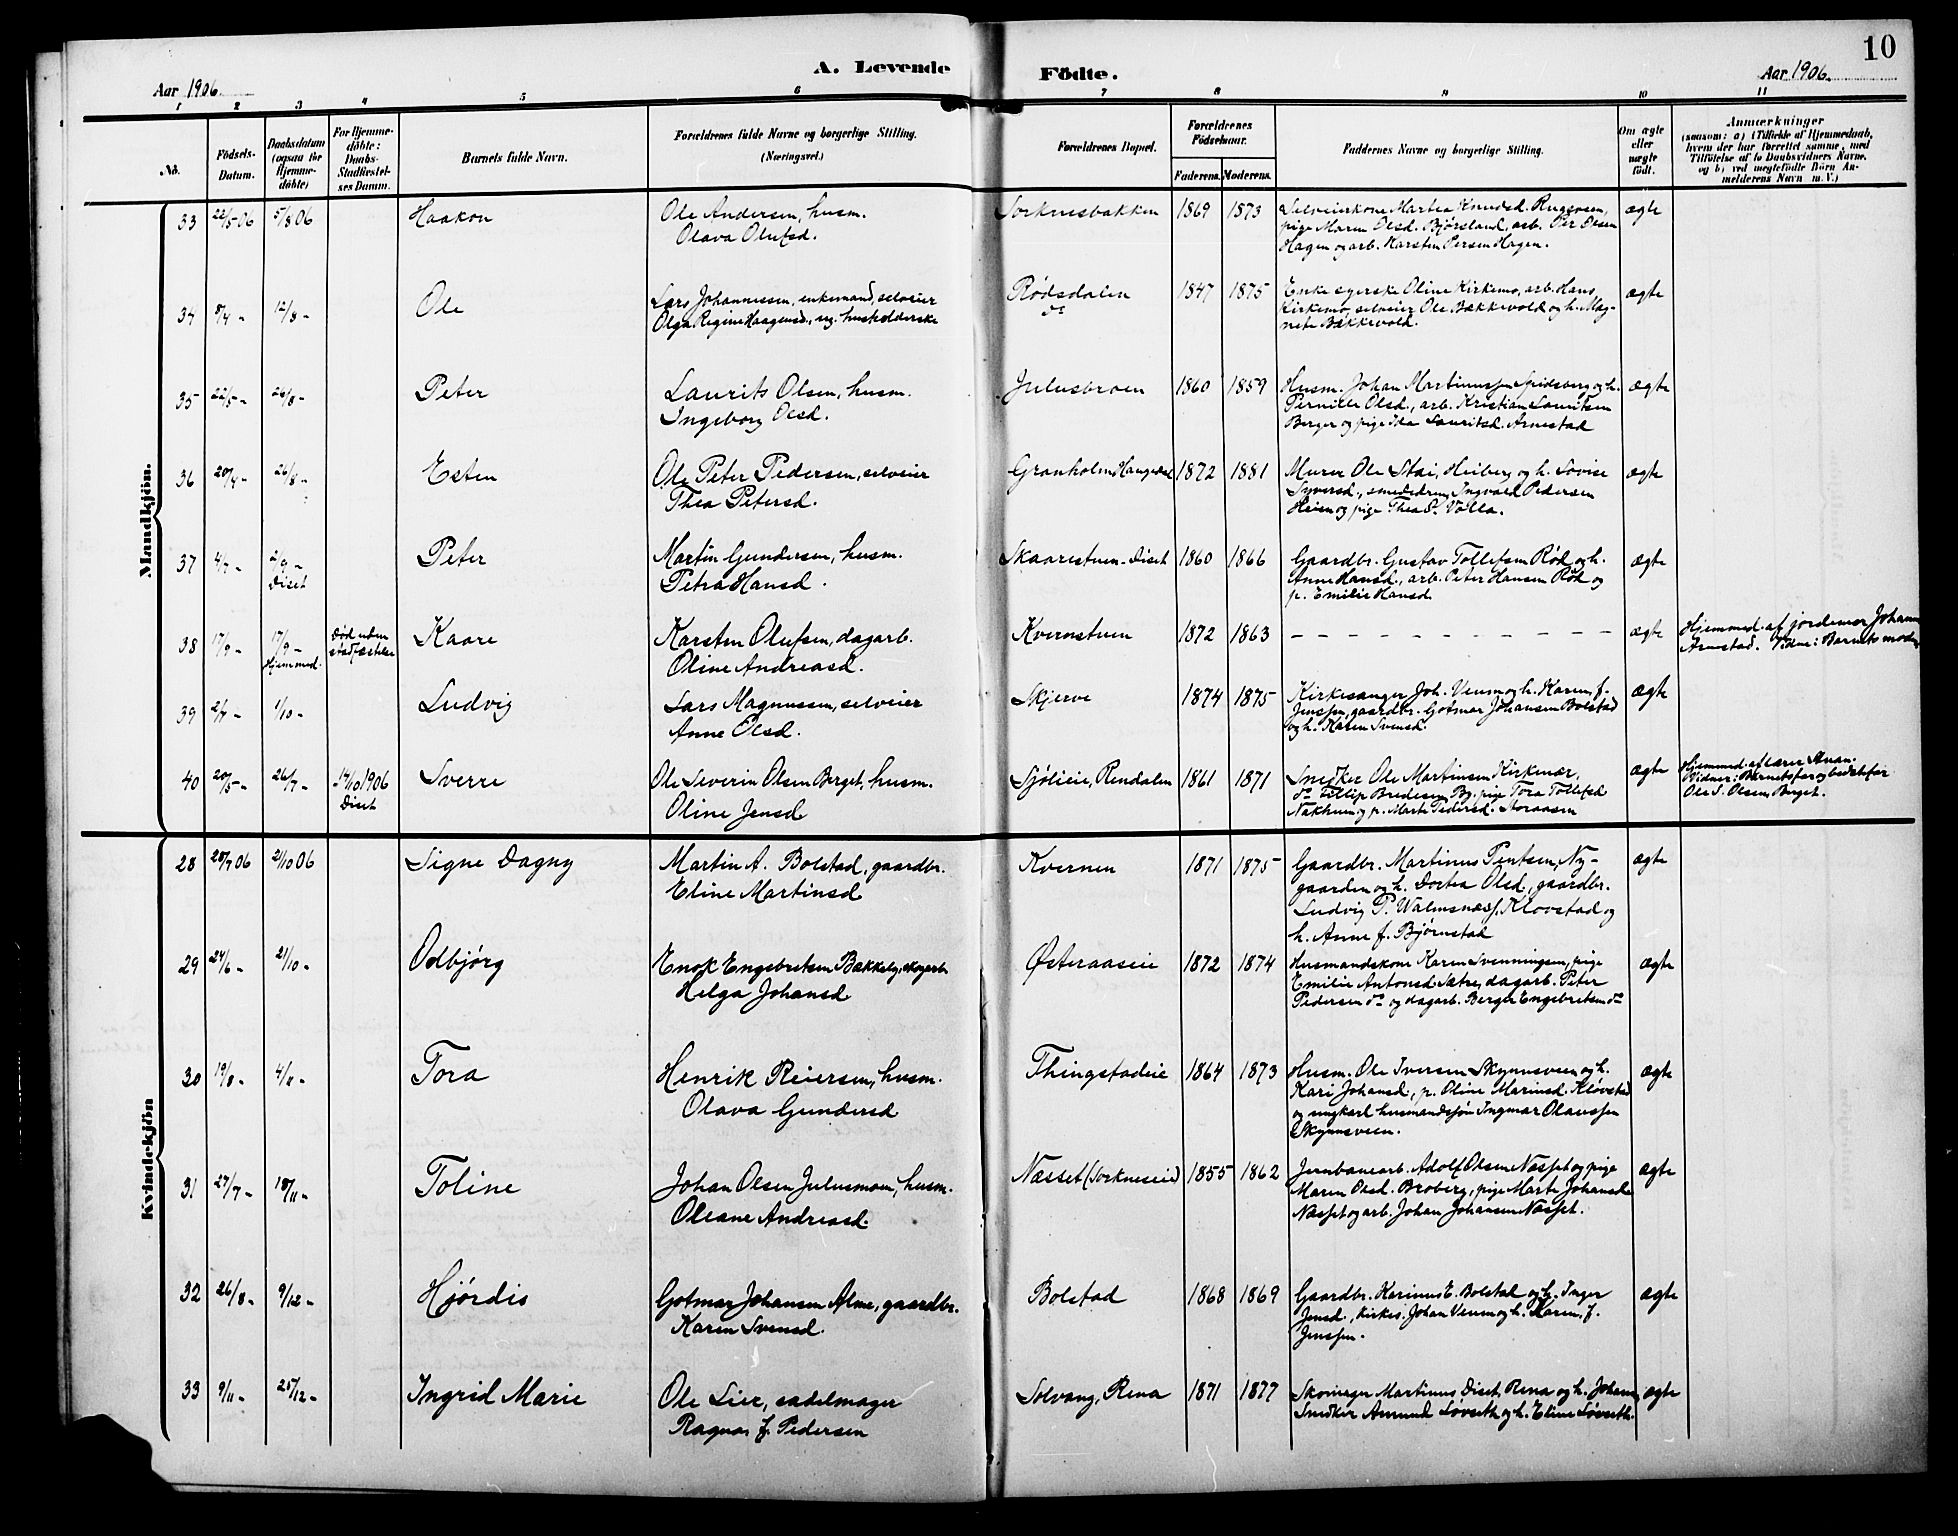 A. Levende Födte.
10
Aar 1906
Aar 1906.
1 2 3 4 5 6 7 8 9 10 11
No.
Födsels-Datum.
Daabsdatum (ogsaa for Hjemme-döbte)
For Hjemme-döbte: Daabs-Stadfæstelses Datum.
Barnets fulde Navn.
Forældrenes fulde Navne og borgerlige Stilling. (Næringsvei.)
Forældrenes Bopæl.
Forældrenes Födselsaar.
Faderens. Moderens.
Faddernes Navne og borgerlige Stilling.
Om ægte eller uægte födt.
Anmærkninger
(saasom: a) (Tilfælde af Hjemmedaab, hvem der har forrettet samme, med Tilföielse af to Daabsvidners Navne, og b) ved uegtefödte Börn Anmelderens Navn m. V.)
Mandkjön.
33 22/5 06 5/8 06 Haakon Ole Andersen, husm. Sorknesbakken 1869 1873 Selveierkone Martea Knudsd. Rugersen, ægte
Olava Olufsd. pige Maren Olsd. Bjørsland, arb. Per Olsen
Hagen og arb. Karsten Persen Hagen.
34 8/4 - 12/8 - Ole Lars Johannessen, enkemand, selveier Rødsdalen 1847 1875 Enke egerske Oline Kirkemo, arb. Hans ægte
Olga Regine Haagensd., ug. husholderske do Kirkemo, selveier Ole Bækkevold og h. Mag-
nete Bækkevold.
35 22/5 - 26/8 - Peter Laurits Olsen, husm. Julusbroen 1860 1859 Husm. Johan Martinussen Spidsberg og h. ægte
Ingeborg Olsd. Pernille Olsd., arb. Kristian Lauritsen
Berger og pige Ida Lauritsd. Arnestad
36 20/4 - 26/8 - Esten Ole Peter Pedersen, selveier Granholm, Haugedal 1872 1881 Murer Ole Stai, Heiberg og h. Lovise ægte
Thea Petersd. Syversd., smededreng Ingvald Pedersen
Heien og pige Thea Volla.
37 4/7 - 2/9 - Diset Peter Martin Gundersen, husm. Skaarestuen - Diset 1860 1866 Gaardbr. Gustav Tollefsen Rød og h. ægte
Petra Hansd. Anne Hansd., arb. Peter Hansen Rød og
p. Emilie Hansd.
38 17/9 - 17/9 - Hjemmed. Død uden stadfæstelse Kaare Karsten Olufsen, dagarb. Kvernstuen 1872 1863 - - - - - - - - - - - ægte Hjemmed. af jordemor Johanne
Oline Andreasd. Arnestad. Vidne: Barnets moder
39 2/7 - 1/10 - Ludvig Lars Magnussen, selveier Skjerve 1874 1875 Kirkesanger Joh. Venm og h. Karen f. ægte
Anne Olsd. Jenssen, gaardbr. Gotmar Johansen Bolstad
og h. Karen Svensd.
40 20/5 - 26/7 - 14/10 1906 Diset Sverre Ole Severin Olsen Berget, husm. Sjølieie, Rendalen 1861 1871 Snedker Ole Martinsen Kirkenær, ægte Hjemmed. af lærer
Oline Jensd do Fillip Bredesen By, pige Tora Tollefsd Vidner: Barnets far og bedstefar
og p. Marte Pedersd. Storaasen Ole S. Olsen, Berget.
Kvindekjön
28 28/7 06 2/10 06 Signe Dagny Martin A. Bolstad, gaardbr. Kvernen 1871 1875 Gaardbr. Martinus Pentsen, Ny- ægte
Eline Martinsd gaarden og h. Dortea Olsd., gaardbr.
Ludvig P. Walmsnæss, Klovstad og
h. Anne f. Bjørnstad
29 24/6 - 21/10 - Odbjørg Enok Engebretsen Bakkely, skogarb. Østeraaseie 1872 1874 Husmandskone Karen Svenningsen, pige ægte
Helga Johansd Emilie Antonsd. Sætre, dagarb. Peter
Pedersen do og dagarb. Berger Engebretsen do
30 19/8 - 4/11 - Tora Henrik Reiersen, husm. Thingstadeie 1864 1873 Husm. Ole Iversen Skynnsveen og h. ægte
Olava Gundersd Kari Johansd, p. Oline Marinsd. Kløvstad
og ungkarl husmandssøn Ingmar Olaussen
Skynnsveen.
31 27/7 - 18/11 - Toline Johan Olsen Julusmoen, husm. Næsset (Sorkneseie) 1855 1862 Jernbanearb. Adolf Olsen Næsset og pige ægte
Oleane Andreasd. Maren Olsd. Broberg, pige Marte Johansd.
Næsset og arb. Johan Johansen Næsset.
32 26/8 - 9/12 - Hjørdis Gotmar Johansen Alme, gaardbr. Bolstad 1868 1869 Gaardbr. Karinus E. Bolstad og h. Inger ægte
Karen Svensd. Jensd., kirkes. Johan Venm og h. Karen, f.
Jenssen.
33 9/11 - 25/12 - Ingrid Marie Ole Lier, sadelmager Solvang, Rena 1871 1877 Skomager Martinus Diset, Rena og h. Johane, ægte
Ragna f. Pedersen Snedker Amund Løvseth og h. Eline Løvseth.